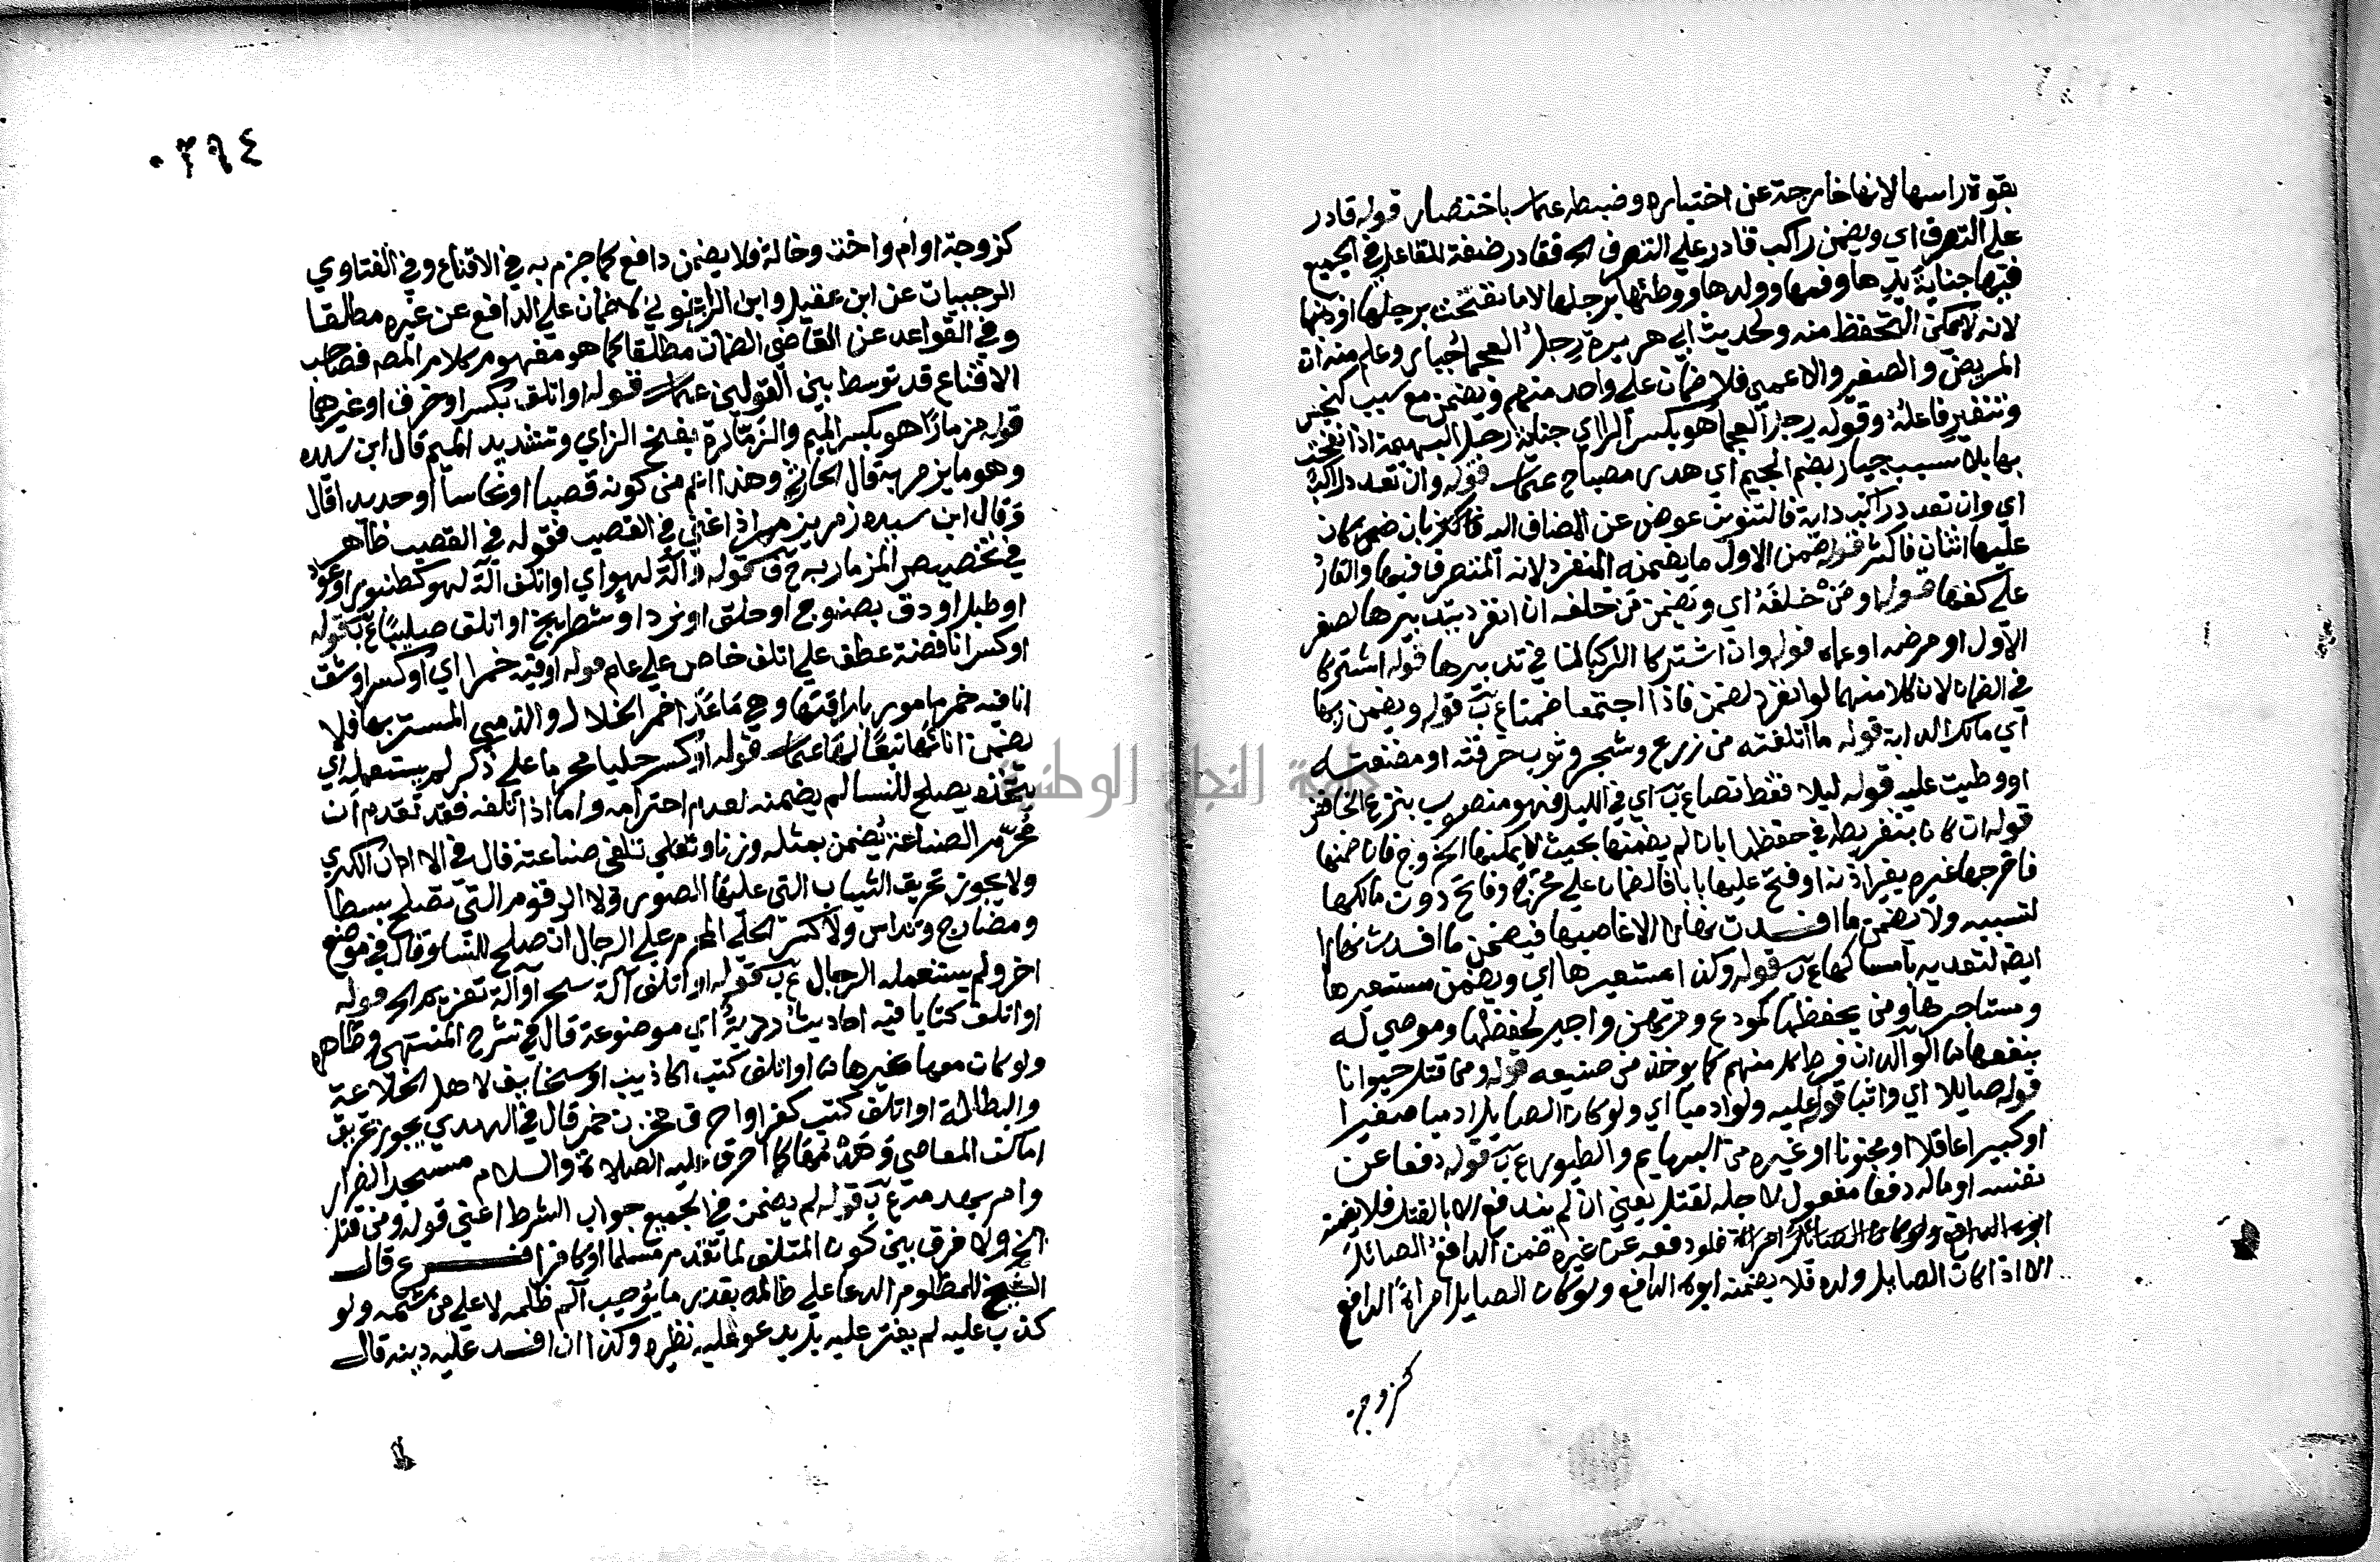 بقوة راسها لانها خارجة عن اختياره وضبطه ع باختصار قوله قادر
على التصرف اي ويضمن راكب قادر على التصرف الخ فقادر صفة للقاعل في الجميع
فيها جناية يدها وفمها وولدها ووطئها برجلها لا ما نفحت برجلها او ذنبها
لانه لا يمكن التحفظ منه ولحديث ابي هريرة رجل العجما جبار وعلم منه ان
المريض والصغير والاعمى فلا ضمان على واحد منهم ويضمن مع سبب كنخس
وتنفير فاعله وقوله رجل العجما هو بكسر الراي جناية رجل البهيمة اذا نفحت
بها بلا سبب جبار بضم الجيم اي هدر مصباح ع قوله وان تعدد راكب
اي وان تعدد راكب دابة فالتنوين عوض عن المضاف اليه فاكثر بان كان
عليها اثنان فاكثر قوله ضمن الاول ما يضمنه المنفرد لانه المتصرف فيها والقادر
على كفها قوله او من خلفه اي ويضمن من خلفه ان انفرد بتدبيرها لصغر
الاول او مرضه او عماه قوله وان اشتركا الراكبان في تدبيرها قوله اشتركا
في الضمان لان كلا منهما لو انفرد لضمن فاذا اجتمعا ضمنا ع ب قوله ويضمن ربها
اي مالك الدابة قوله ما اتلفته من زرع وشجر وثوب خرقته او مضغته
او وطيت عليه قوله ليلا فقط نصا ع ب اي في الليل فهو منصوب بنزع الخافض
قوله ان كان بتفريط في حفظها بان لم يضمنها بحيث لا يمكنها الخروج فان ضمنها
فاخرجها غيره بغير اذنه او فتح عليها بابا فالضمان على مخرج وفاتح دون مالكها
لتسببه ولا يضمن ما افسدت نهارا الا غاصبها فيضمن ما افسدت نهارا
ايضا لتعديه بامساكها ع ب قوله وكذا مستعيرها اي ويضمن مستعيرها
ومستاجرها ومن يحفظها كمودع ومرتهن واجير لحفظها وموصى له
بنفعها ان فرط كل منهم كما يوخذ من صنيعه قوله ومن قتل حيوانا
قوله صايلا اي واثبا قوله عليه ولو ادميا اي ولو كان الصايل ادميا صغيرا
او كبيرا عاقلا او مجنونا او غيره من البهايم والطيور ع ب قوله دفعا عن
نفسه او ماله دفعا مفعول لاجله لقتل يعني ان لم يندفع الا بالقتل فلا يضمنه
ابوه الدافع ولو كان الصائل امراة فلو دفعه عن غيره ضمن الدافع الصائل
الا اذا كان الصايل ولده فلا يضمنه ابوه الدافع ولو كان الصايل امراة الدافع
كزوج
٣٩٤
كزوجة او ام واخت وخالة فلا يضمن دافع كما جزم به في الاقناع وفي الفتاوي
الرجبيات عن ابن عقيل وابن الزاغوني لا ضمان على الدافع عن غيره مطلقا
وفي القواعد عن القاضي الضمان مطلقا كما هو مفهوم كلام المص فصاحب
الاقناع قد توسط بين القولين ع قوله او اتلف بكسر او خرق او غيرهما
قوله مزمارا هو بكسر الميم والزمارة بفتح الزاي وتشديد الميم قال ابن سيده
وهو ما يزمر به قال الحارثي وهذا اعم من كونه قصبا او نحاسا او حديدا قال
وقال ابن سيده زمر يزمر اذا غنى في القصب فقوله في القصب ظاهر
في تخصيص المزمار به ح ف قوله او آلة لهو اي او اتلف آلة لهو كطنبور او عود
او طبل او دف بصنوج او حلق او نرد او شطرنج او اتلف صليبا ع ب قوله
او كسر انا فضة عطف على اتلف خاص على عام قوله او فيه خمرا اي او كسر او شق
انا فيه خمر مامور باراقتها وهي ما عدا خمر الخلال والذمي المستتر بها فلا
يضمن انائها تبعا لها ع قوله او كسر حليا محرما على ذكر لم يستعمله اي
يتخذه يصلح للنسا لم يضمنه لعدم احترامه واما اذا اتلفه فقد تقدم ان
محرم الصناعة يضمن بمثله وزنا وتلغى صناعته قال في الاداب الكبرى
ولا يجوز تحريق الثياب التي عليها الصور ولا الرقوم التي تصلح بسطا
ومضارج وتداس ولا كسر الحلي المحرم على الرجال ان صلح للنسا وقال في موضع
اخر ولم يستعمله الرجال ع ب قوله او اتلف آلة سحر او آلة تعزيم الخ قوله
او اتلف كتابا فيه احاديث ردية اي موضوعة قال في شرح المنتهى وظاهره
ولو كان معها غيرها او اتلف كتب اكاذيب او سخايف لاهل الخلاعة
والبطالة او اتلف كتب كفر او حرق مخزن خمر قال في الهدي يجوز تحريق
اماكن المعاصي وهدمها كما احرق عليه الصلاة والسلام مسجد الضرار
وامر بهدمه ع ب قوله لم يضمن في الجميع جواب الشرط اعني قوله ومن قتل
الخ ولا فرق بين كون المتلف لما تقدم مسلما او كافرا فرع قال
الشيخ للمظلوم الدعا على ظالمه بقدر ما يوجب الم ظلمه لا على من شتمه ولو
كذب عليه لم يفتر عليه بل يدعو عليه نظيره وكذا ان افسد عليه دينه قال
جامعة النجاح الوطنية